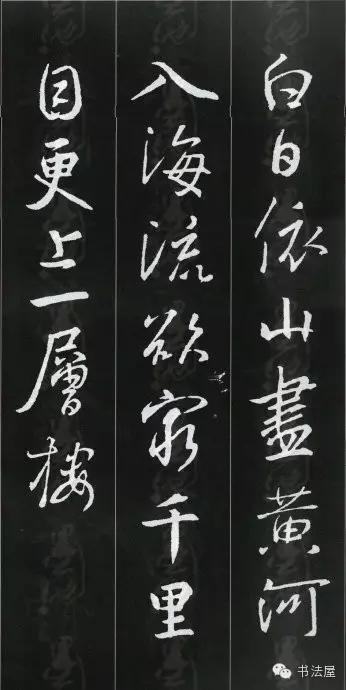 白日依山盡黄河
入海流欲窮千里
目更上一層樓
书法屋